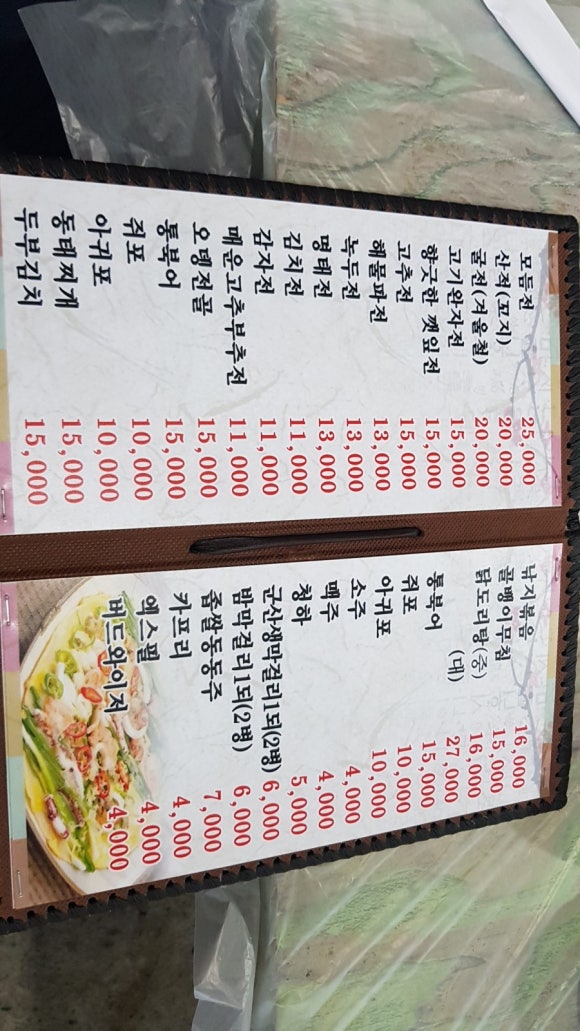 모듬전 25,000
산적(꼬지) 25,000
굴전(겨울철) 20,000
고기완자전 15,000
향긋한 깻잎전 15,000
고추전 15,000
해물파전 13,000
녹두전 13,000
명태전 13,000
김치전 11,000
감자전 11,000
매운고추부추전 11,000
오뎅전골 15,000
통북어 15,000
쥐포 10,000
아귀포 10,000
동태찌개 15,000
두부김치 15,000
낙지볶음 16,000
골뱅이무침 15,000
닭도리탕(중) 16,000
(대) 27,000
통북어 15,000
쥐포 10,000
아귀포 10,000
소주 4,000
맥주 4,000
청하 5,000
군산생막걸리1되(2병) 6,000
밤막걸리1되(2병) 6,000
찹쌀동동주 7,000
카프리 4,000
엑스필 4,000
버드와이저 4,000